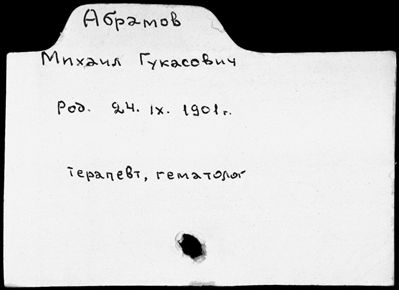 Абрамов
Михаил Гукасович
род. 24. IX. 1901г.
терапевт, гематолог